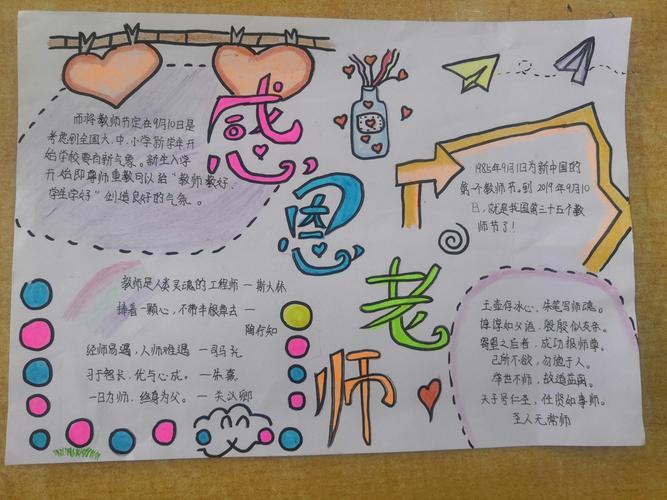 感恩老师
而将教师节定在9月10日是
考虑到全国大、中、小学新学年开
始学校要有新气象。新生入学
开始即尊师重教可以给“教师教好，
学生学好”创造良好的气氛。
1985年9月1日为新中国的
第一个教师节。到2019年9月10
日，就是我国第三十五个教
师节了！
教师是人类灵魂的工程师一斯大林
捧着一颗心，不带半根草去一
陶行知
经师易遇，人师难遇 一司马光
习于智长，优与心成。一朱熹
一日为师，终身为父。一关汉卿
玉壶存冰心，朱笔写师魂。
谆谆如父语，殷殷似友亲。
蜀望之后者，成功报师尊。
己所不欲，勿施于人。
举世不师，故道益离。
天子号仁圣，任贤如事师。
至人无常师